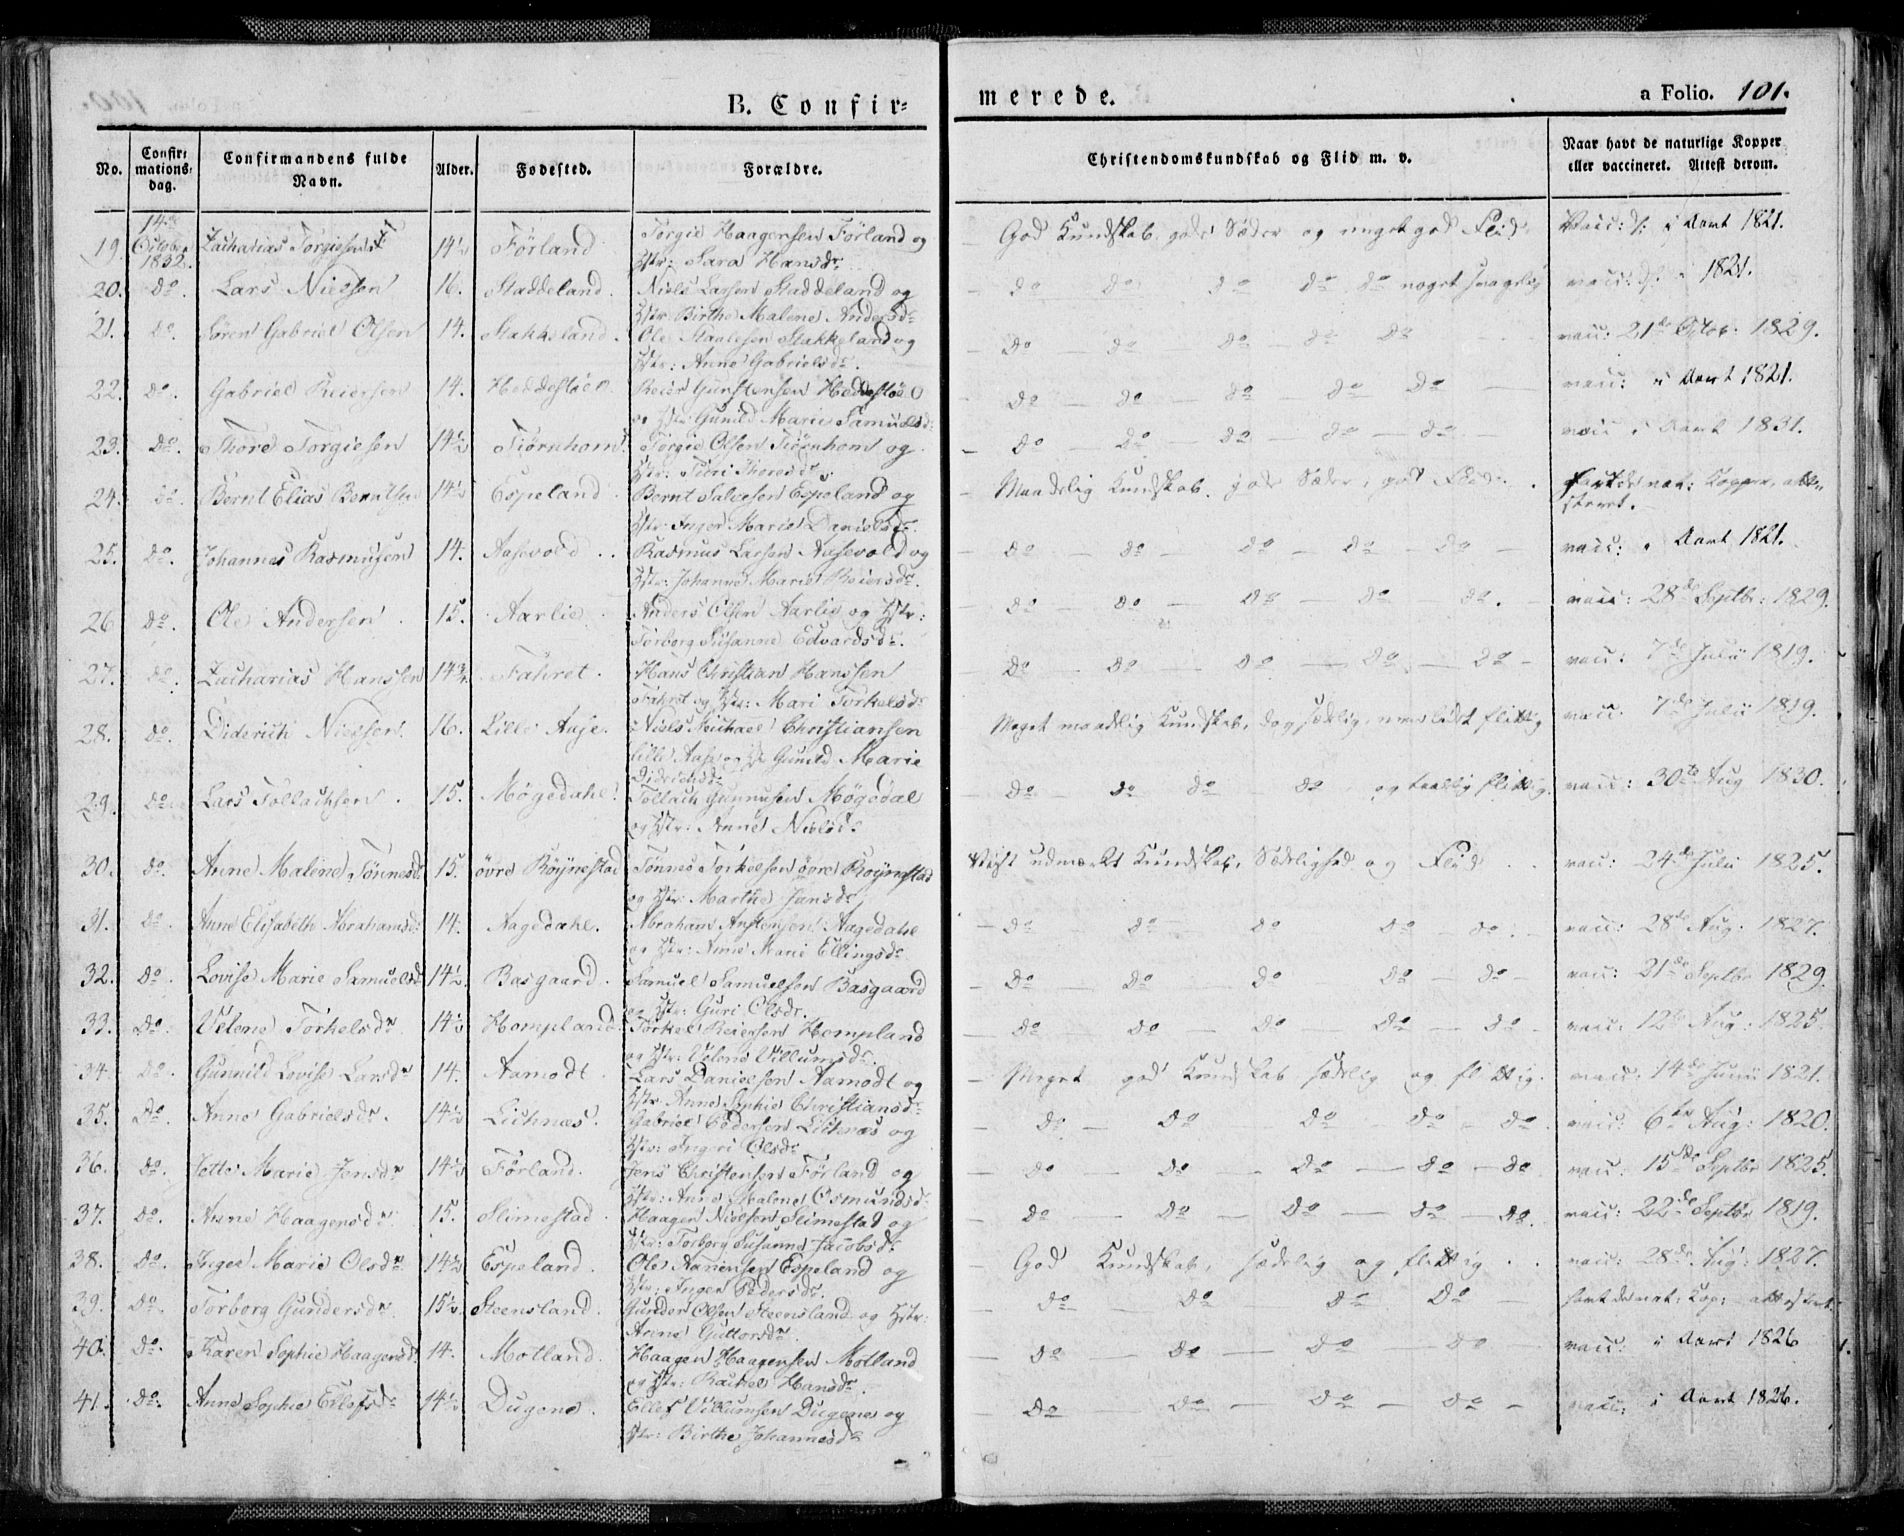 B. Confir=
merede.
a Folio. 101.
No.
Confir=
mations=
dag.
Confirmandens fulde
Navn.
Alder.
Fødested.
Forældre.
Christendomskundskab og Flid m. v.
Naar havt de naturlige Kopper
eller vaccineret. Attest derom.
19. 14de October 1832. Zacharias Torgiesen 14½ Førland Torgie Haagensen Førland og
Hstr: Sara Hansdr. God Kundskab, gode Sæder og meget god Flid. Vacc: i Aaret 1821.
20. Do. Lars Nielsen 16. Staddeland. Niels Larsen Staddeland og
Hstr Birthe Malene Andersdr Do Do Do Do Do noget svagelig vacc: 1821.
21. Do. Søren Gabriel Olsen 14. Stakkeland. Ole Staalesen Stakkeland og
Hstr: Anne Gabrielsdr. Do Do Do Do Do vacc: 21de Octob: 1829.
22. Do. Gabriel Reiersen 14. Heddestøl Reier Gunstensen Heddestøl
og Hstr Gunild Marie Samuelsd: Do Do Do Do Do vacc: i Aaret 1821.
23. Do. Thore Torgiesen 14½ Tiørnhom Torgie Olsen Tiørnhom og
Hstr: Siri Thoresdr. Do Do Do Do Do vacc i Aaret 1831.
24. Do. Bernt Elias Berntsen 14½ Espeland Bernt Salvesen Espeland og
Hstr Inger Marie Danielsdr. Maadelig Kundskab, gode Sæder, god Flid. havt de nat: Kopper, atte-
steret.
25. Do. Johannes Rasmussen 14. Aasevold Rasmus Larsen Aasevold og
Hstr: Johanne Marie Reiersdr. Do Do Do Do Do vacc: i Aaret 1821.
26 Do. Ole Andersen 15. Aarlie Anders Olsen Aarlie og Hstr:
Torborg Susanne Edvardsdr. Do Do Do Do Do. vacc: 28de Septbr: 1829.
27. Do. Zacharias Hanssen 14¾ Fahret. Hans Christian Hanssen
Fahret og Hstr: Mari Torkelsdr Do Do Do Do Do vacc: 7de Julii 1819.
28. Do. Diderich Nielsen 16. Lille Aase. Niels Michael Christiansen
Lille Aase og Hstr Gunild Marie
Didrichsdr Meget maadelig Kundskab, dog sædelig, men lidet flittig vacc: 7de Julii 1819.
29. Do Lars Tollachsen. 15. Møgedahl Tollach Gunnusen Møgedal
og Hstr: Anne Nielsdr Do Do Do Do og taalelig flittig. vacc: 30te Aug 1830.
30. Do. Anne Malene Tønnesdr 15. øvre Røynestad Tønnes Torkelsen øvre Røynestad
og Hstr: Marthe Jansdr udmærket Kundskab, Sædelighed og Flid vacc: 24de Julii 1825.
31. Do. Anne Elisabeth Abrahamsd: 14. Aagedahl. Abraham Anstensen Aagedahl
og Hstr: Anne Marie Ellingsdr Do Do Do Do Do. vacc: 28de Aug: 1827.
32. Do. Lovise Marie Samuelsd 14½ Basgaard. Samuel Samuelsen Basgaard
og Hstr: Guri Olsdr. Do Do Do Do Do vacc: 21de Septbr 1829.
33. Do. Velene Torkelsdr 14½ Hompland Torkel Reiersen Hompland
og Hstr: Velene Villumsdr. Do Do Do Do Do vacc: 12te Aug: 1825.
34. Do. Gunnild Lovise Larsdr 14. Aamodt. Lars Danielsen Aamodt og
Hstr Anne Sophie Christiansdr Meget god Kundskab sædelig og flittig. vacc: 14de Junii 1821.
35. Do. Anne Gabrielsdr. 14½ Lichnæs. Gabriel Pedersen Lichnæs og
Hstr: Ingeri Olsdr Do Do Do Do Do. vacc: 6te Aug: 1820.
36. Do. Jette Marie Jensdr 14½ Førland. Jens Christensen Førland og
Hstr: Anne Malene Osmundsd: Do Do Do Do Do vacc: 15de Septbr 1825.
37. Do. Anne Haagensdr. 15. Slimestad. Haagen Nielsen Slimestad og
Hstr: Torborg Susanne Jacobsdr Do Do Do Do Do. vacc: 22de Septbr 1819.
38. Do. Inger Marie Olsdr 14½ Espeland. Ole Aanensen Espeland og
Hstr: Inger Pedersdr. God Kundskab, sædelig og flittig vacc: 28de Aug: 1827.
39. Do Torborg Gundersdr. 15½ Steensland. Gunder Olsen Steensland og Hstr:
Anne Guttorsdr. Do Do Do Do havt de nat: Kop: attesteret.
40. Do. Karen Sophie Haagensd. 14. Motland. Haagen Haagensen Motland
og Hstr: Rachel Hansdr. Do Do Do Do vacc: i Aaret 1826
41. Do. Anne Sophie Ellefsdr 14½ Dugene. Ellef Villumsen Dugene og
Hstr: Birthe Johannesdr Do Do Do Do vacc: i Aaret 1826.